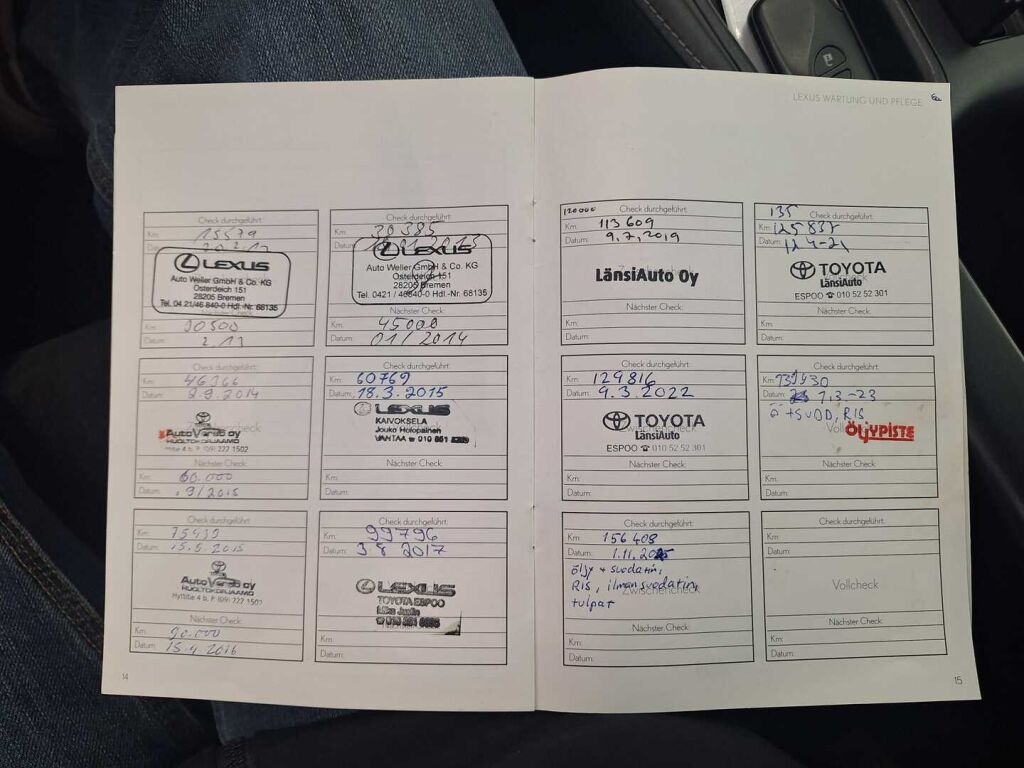 LEXUS WARTUNG UND PFLEGE
Check durchgeführt:
Km: 15579
Datum: 20.2.13
LEXUS
Auto Weller GmbH & Co. KG
Osterdeich 151
28205 Bremen
Tel. 04 21/46 840-0 Hdl.-Nr. 68135
Km: 30500
Datum: 2.13
Check durchgeführt:
Km: 30385
Datum:
LEXUS
Auto Weller GmbH & Co. KG
Osterdeich 151
28205 Bremen
Tel. 0421 / 46 840-0 Hdl.-Nr. 68135
Nächster Check:
Km: 45000
Datum: 01/2014
Km: 46366
Datum: 2.9.2014
AutoVerso oy
HUOLTOKORJAAMO
Nächster Check:
Km: 60.000
Datum: 9/2015
Km: 60769
Datum: 18.3.2015
LEXUS
KAIVOKSELA
Jouko Holopainen
Nächster Check:
Km:
Datum:
Check durchgeführt:
Km: 75439
Datum: 15.5.2015
AutoVerso oy
HUOLTOKORJAAMO
Hyttitie 4 b, P. (09) 227 1502
Nächster Check:
Km: 90.000
Datum: 15.4.2016
Check durchgeführt:
Km: 99796
Datum: 3.8 2017
LEXUS
TOYOTA ESPOO
Nächster Check:
Km:
Datum:
14
120000 Check durchgeführt:
Km: 113609
Datum: 9.7.2019
LänsiAuto Oy
Nächster Check:
Km:
Datum:
135 Check durchgeführt:
Km: 125837
Datum: 12.4-21
TOYOTA
LänsiAuto
ESPOO ☎ 010 52 52 301
Nächster Check:
Km:
Datum:
Check durchgeführt:
Km: 129816
Datum: 9.3.2022
TOYOTA
Zwischencheck
LänsiAuto
ESPOO ☎ 010 52 52 301
Nächster Check:
Km:
Datum:
Check durchgeführt:
Km:
Datum: 7.3.-23
ö +SUOD, RIS
Vollcheck
ÖLJYPISTE
Nächster Check:
Km:
Datum:
Check durchgeführt:
Km: 156408
Datum: 1.11.2025
Öljy + suodatin,
Zwischencheck
RIS, ilmansuodatin,
tulpat
Nächster Check:
Km:
Datum:
Check durchgeführt:
Km:
Datum:
Vollcheck
Nächster Check:
Km:
Datum:
15